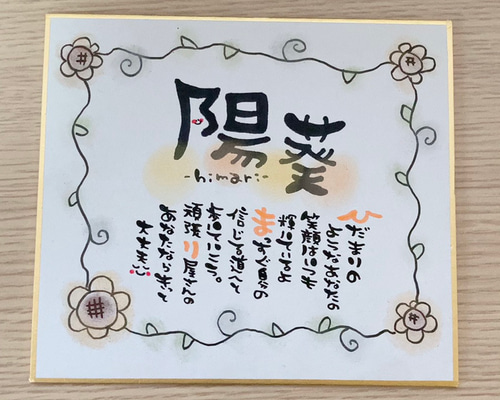 陽葵
-himari-
ひだまりの
ようなあなたの
笑顔はいつも
輝いているよ
まっすぐ自分の
信じる道へと
歩いていこう。
頑張り屋さんの
あなたなら きっと
大丈夫